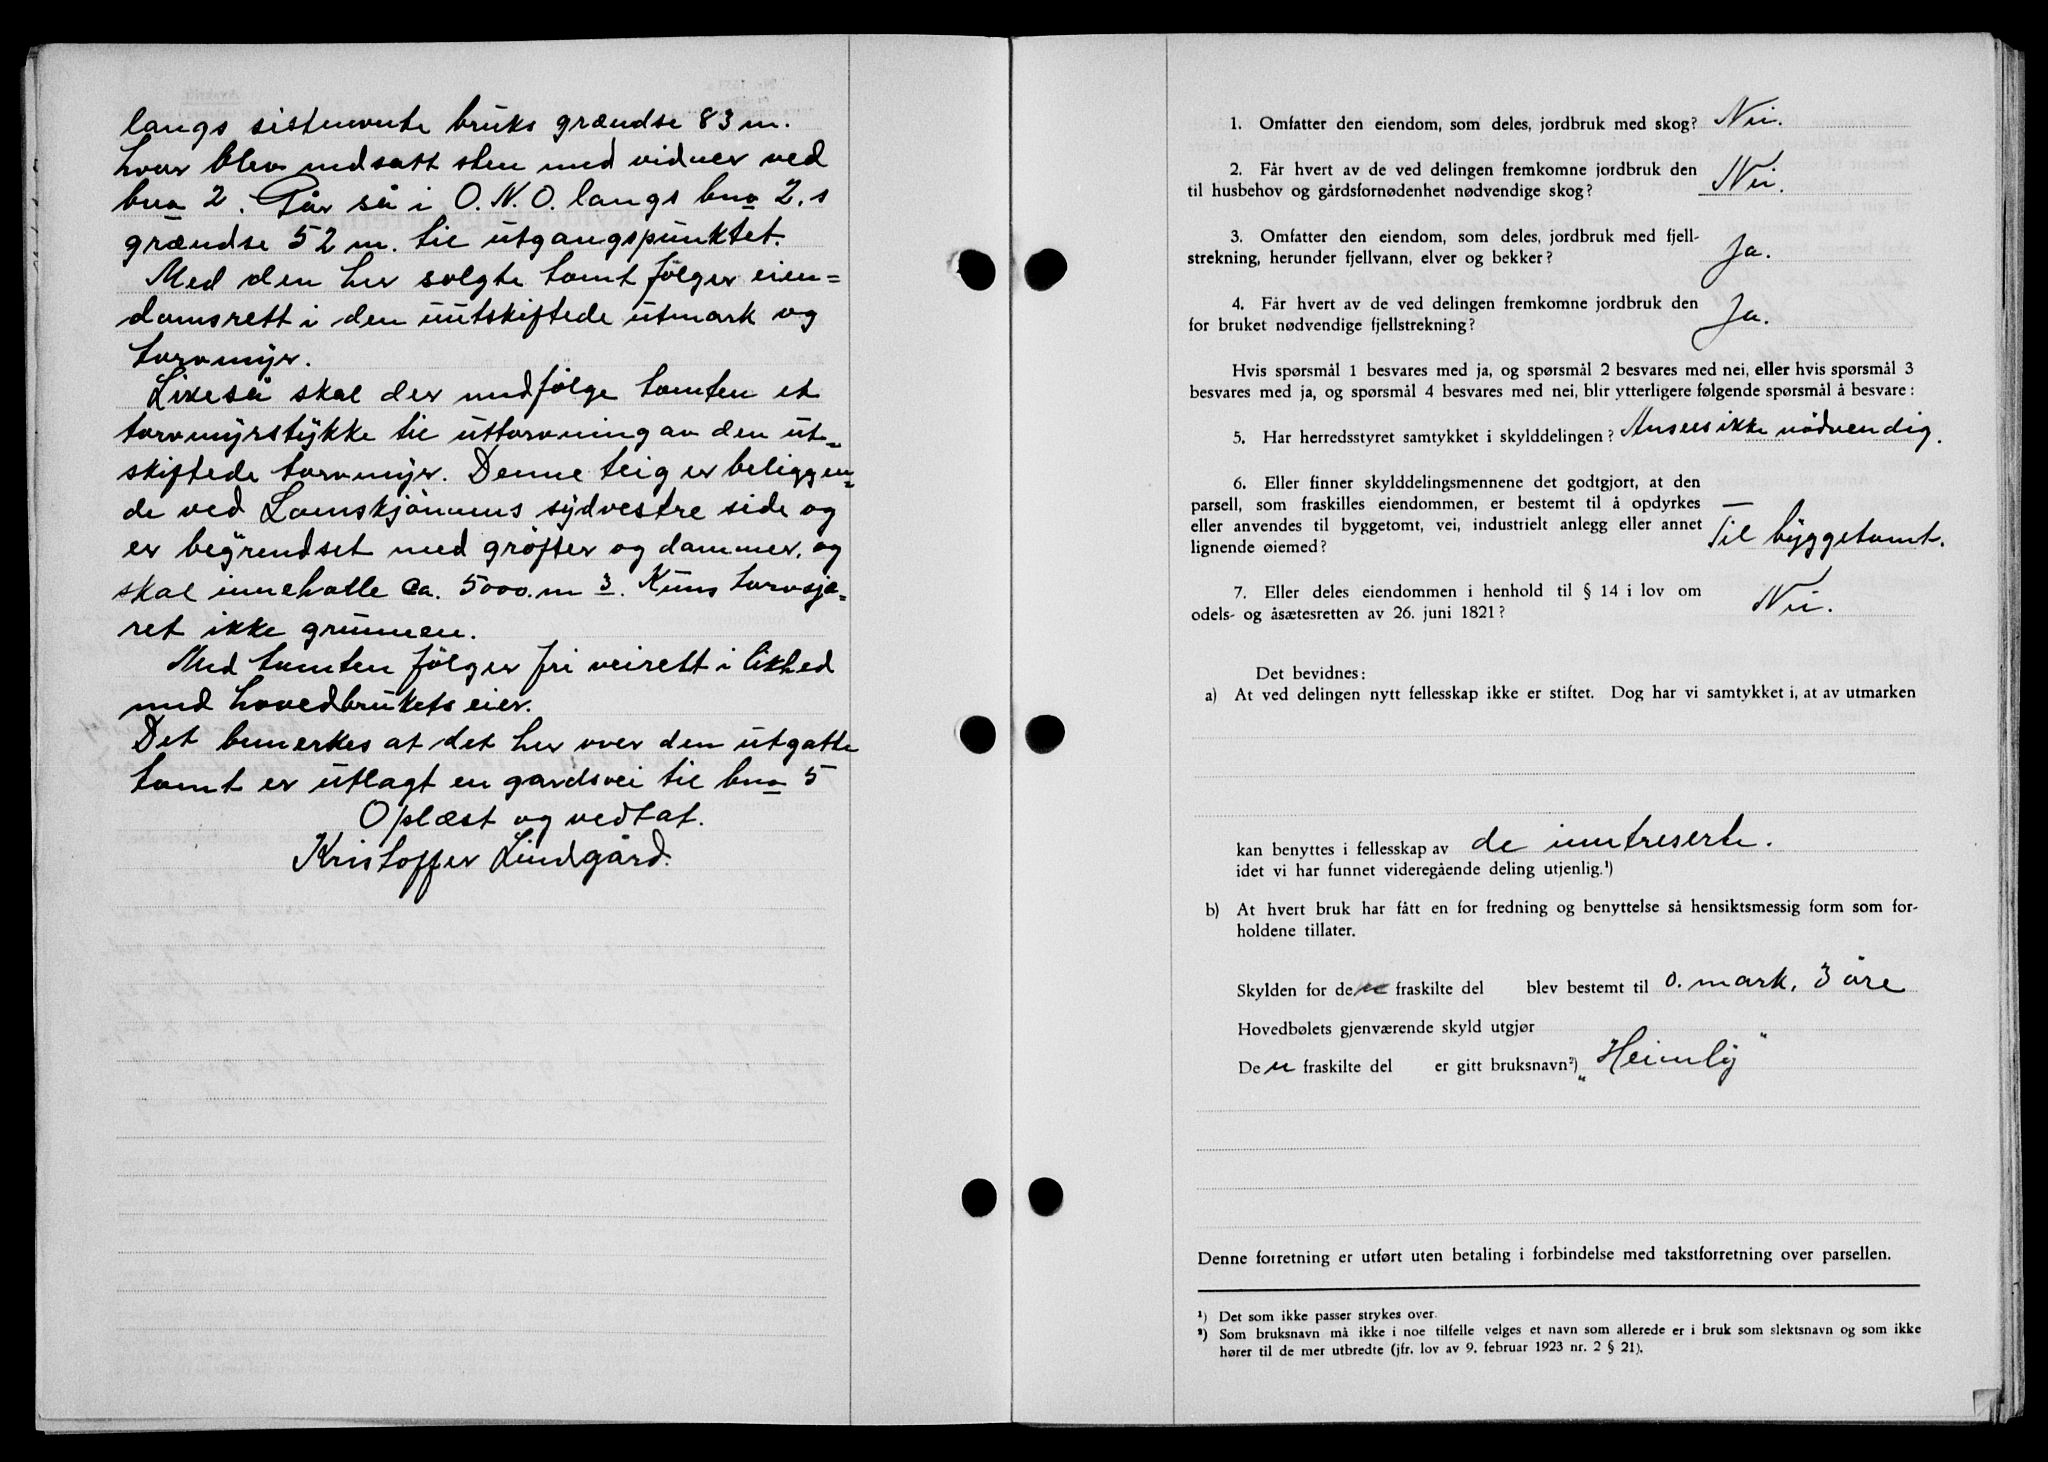 langs sistnevnte bruks grændse 83 m.
hvor blev nedsatt sten med vidner ved
bno 2. Går så i O.N.O. langs bno 2.s
grændse 52 m. til utgangspunktet.
Med den her solgte tomt følger eien=
domsrett i den uutskiftede utmark og
torvmyr.
Likeså skal der medfølge tomten et
torvmyrstykke til uttorvning av den ut-
skiftede torvmyr. Denne teig er beliggen-
de ved Lomskjønnens sydvestre side og
er begrendset med grøfter og dammer, og
skal inneholle ca. 5000.m 3. Kuns torvskjæ-
ret ikke grunnen.
Med tomten følger fri veirett i likhed
med hovedbrukets eier.
Det bemerkes at det her over den utgatte
tomt er utlagt en gardsvei til bno 5
Oplæst og vedtat.
Kristoffer Lindgård.
1. Omfatter den eiendom, som deles, jordbruk med skog? Nei.
2. Får hvert av de ved delingen fremkomne jordbruk den
til husbehov og gårdsfornødenhet nødvendige skog? Nei.
3. Omfatter den eiendom, som deles, jordbruk med fjell-
strekning, herunder fjellvann, elver og bekker? Ja.
4. Får hvert av de ved delingen fremkomne jordbruk den
for bruket nødvendige fjellstrekning? Ja.
Hvis spørsmål 1 besvares med ja, og spørsmål 2 besvares med nei, eller hvis spørsmål 3
besvares med ja, og spørsmål 4 besvares med nei, blir ytterligere følgende spørsmål å besvare:
5. Har herredsstyret samtykket i skylddelingen? Ansees ikke nødvendig.
6. Eller finner skylddelingsmennene det godtgjort, at den
parsell, som fraskilles eiendommen, er bestemt til å opdyrkes
eller anvendes til byggetomt, vei, industrielt anlegg eller annet
lignende øiemed? Til byggetomt.
7. Eller deles eiendommen i henhold til § 14 i lov om
odels- og åsætesretten av 26. juni 1821? Nei.
Det bevidnes:
a) At ved delingen nytt fellesskap ikke er stiftet. Dog har vi samtykket i, at av utmarken
kan benyttes i fellesskap av de inntreserte.
idet vi har funnet videregående deling utjenlig.¹)
b) At hvert bruk har fått en for fredning og benyttelse så hensiktsmessig form som for-
holdene tillater.
Skylden for den fraskilte del blev bestemt til 0. mark, 3 øre
Hovedbølets gjenværende skyld utgjør
Den fraskilte del er gitt bruksnavn²) „Heimly"
Denne forretning er utført uten betaling i forbindelse med takstforretning over parsellen.
¹) Det som ikke passer strykes over.
²) Som bruksnavn må ikke i noe tilfelle velges et navn som allerede er i bruk som slektsnavn og som ikke
hører til de mer utbredte (jfr. lov av 9. februar 1923 nr. 2 § 21).